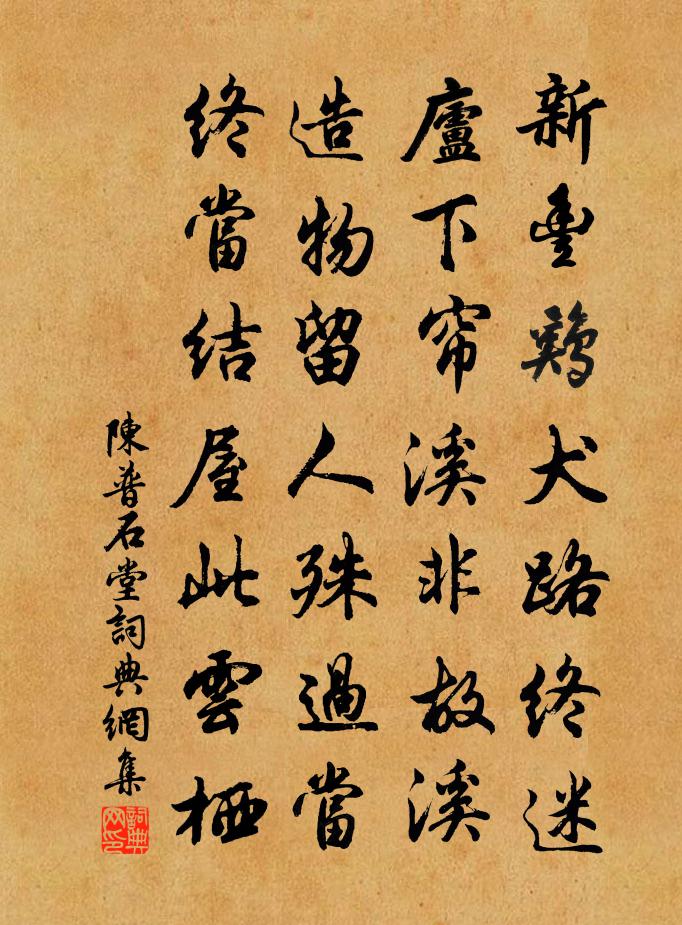 新豐鷄犬路終迷
廬下帘溪非故溪
造物留人殊過當
終當結屋此雲栖
陳普石堂詞典網集
詞典网印